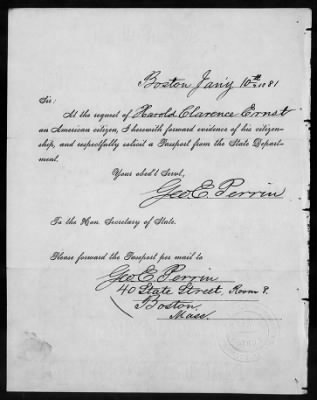 Boston Jan'y 10th 1881
Sir:
At the request of Harold Clarence Ernst
an American citizen, I herewith forward evidence of his citizen-
ship, and respectfully solicit a Passport from the State Depart-
ment.
Your obed't Servt,
Geo. E. Perrin
To the Hon. Secretary of State.
Please forward the Passport per mail to
Geo E Perrin
40 State Street, Room 8.
Boston,
Mass.